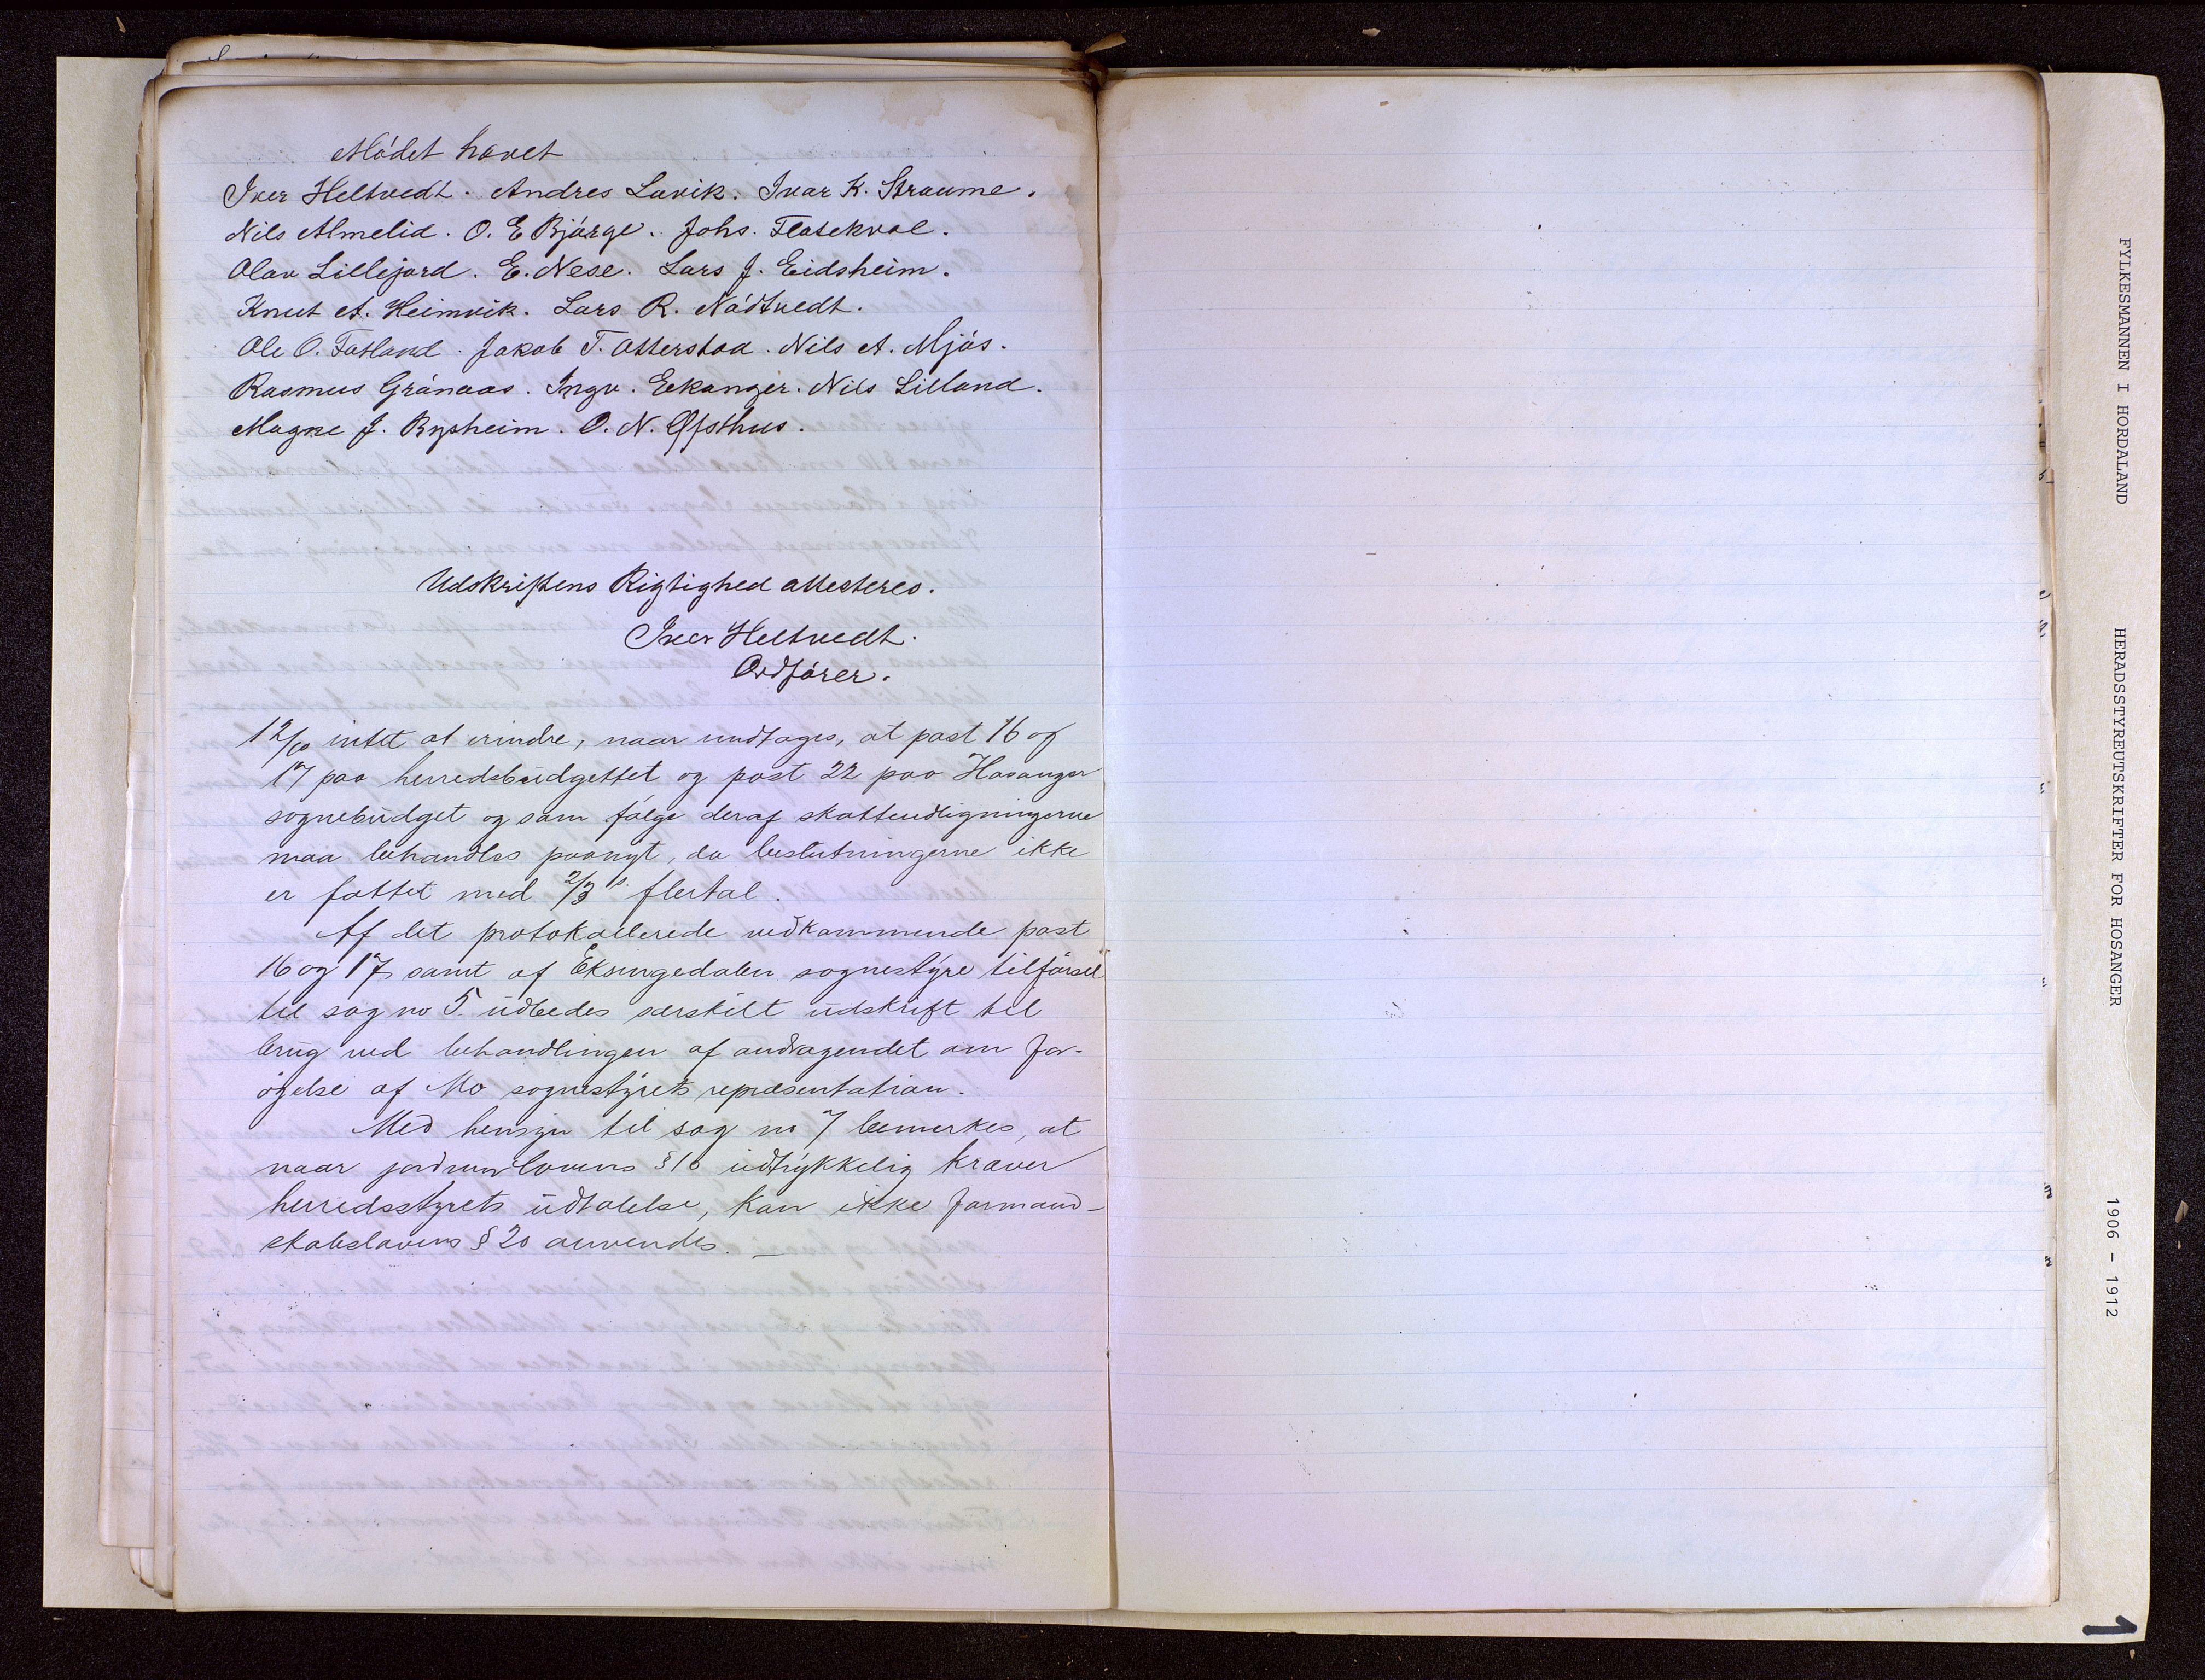 Mødet hævet
Iver Heltvedt. Andres Lavik. Ivar K. Straume.
Nils Almelid. O. E Bjørge. Johs. Flatekval.
Olav Lillejord. E. Nese. Lars J. Eidsheim.
Knut A. Heimvik. Lars R. Nødtvedt.
Ole O. Fatland. Jakob T. Otterstad. Nils A. Mjøs.
Rasmus Grønaas. Ingv. Eekanger. Nils Lilland.
Magne J. Rypheim. O. N. Øfsthus.
Udskriftens Rigtighed attesteres.
Iver Heltvedt.
Ordfører.
12/10 intet at erindre, naar undtages, at post 16 og
17 paa herredsbudgettet og post 22 paa Hosanger
sognebudget og som følge deraf skatteudligningerne
maa behandles paanyt, da beslutningerne ikke
er fattet med 2/3 s flertal.
Af det protokollerede vedkommende post
16 og 17 samt af Eksingedalen sognestyre tilførsel
til sag no 5 udbedes særskilt udskrift til
brug ved behandlingen af andragendet om for-
øgelse af Mo sognestyrets repræsentation.
Med hensyn til sag no 7 bemerkes, at
naar jordmorlovens § 10 udtrykkelig kræver
herredsstyrets udtalelse, kan ikke formand-
skabslovens § 20 anvendes. —
FYLKESMANNEN I HORDALAND
HERADSSTYREUTSKRIFTER FOR HOSANGER
1906 - 1912
1